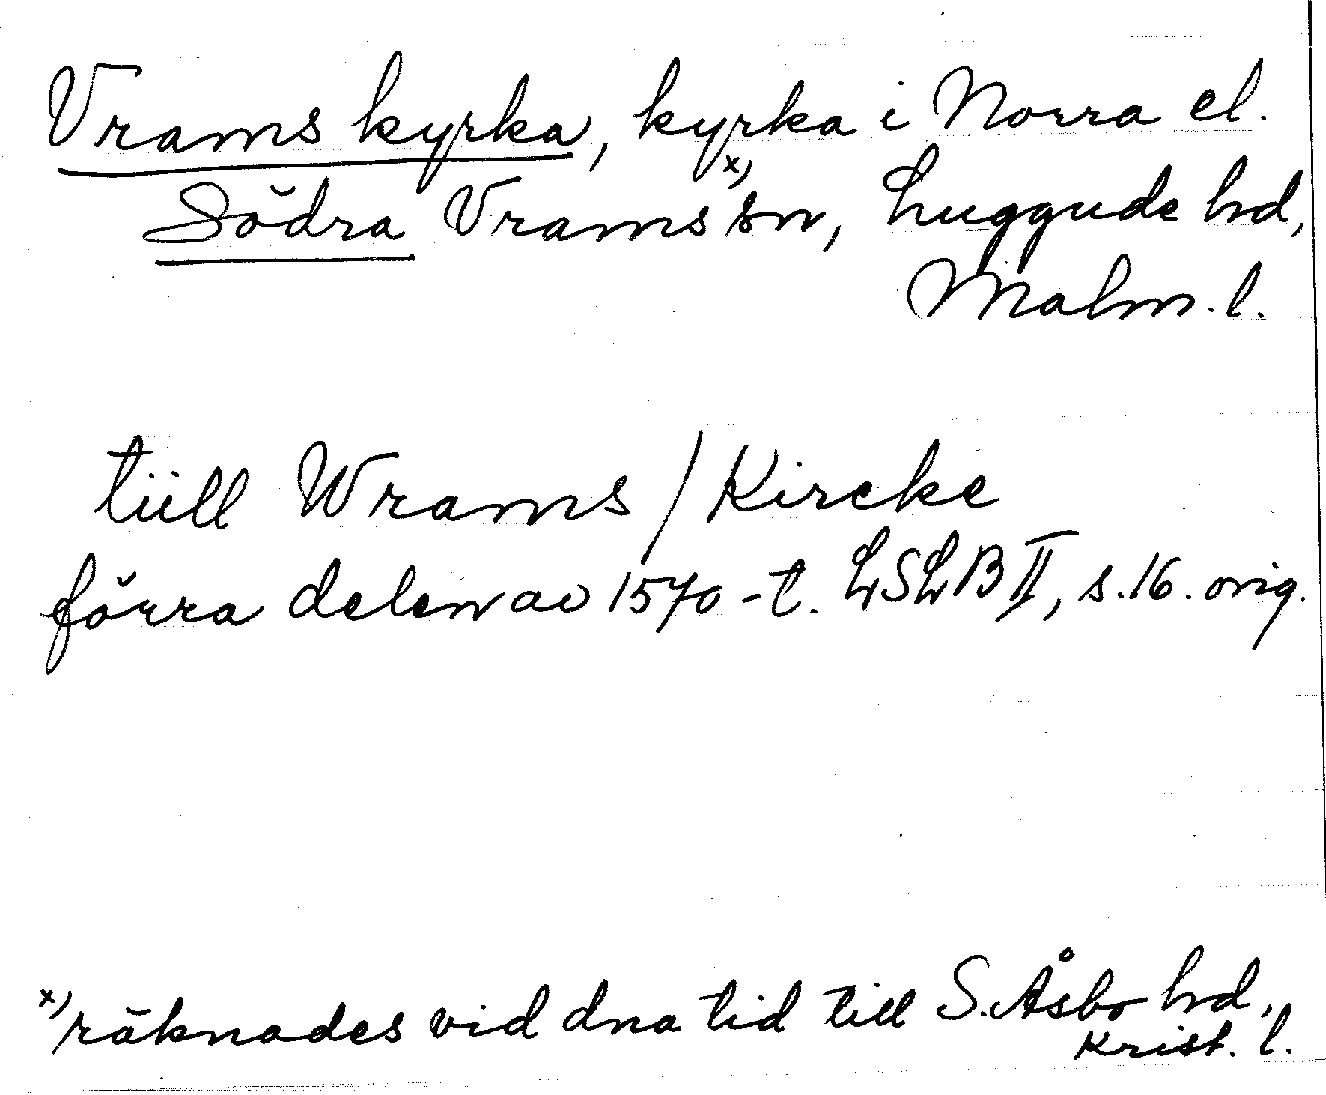 Vrams kyrka, kyrka i Norra el.
Södra Vrams x) sn, Luggude hd,
Malm. l.
tiill Wrams / Kircke
förra delen av 1570-t. LSLB II, s. 16. orig.
x) räknades vid dna tid till S. Åsbo hd,
Krist. l.